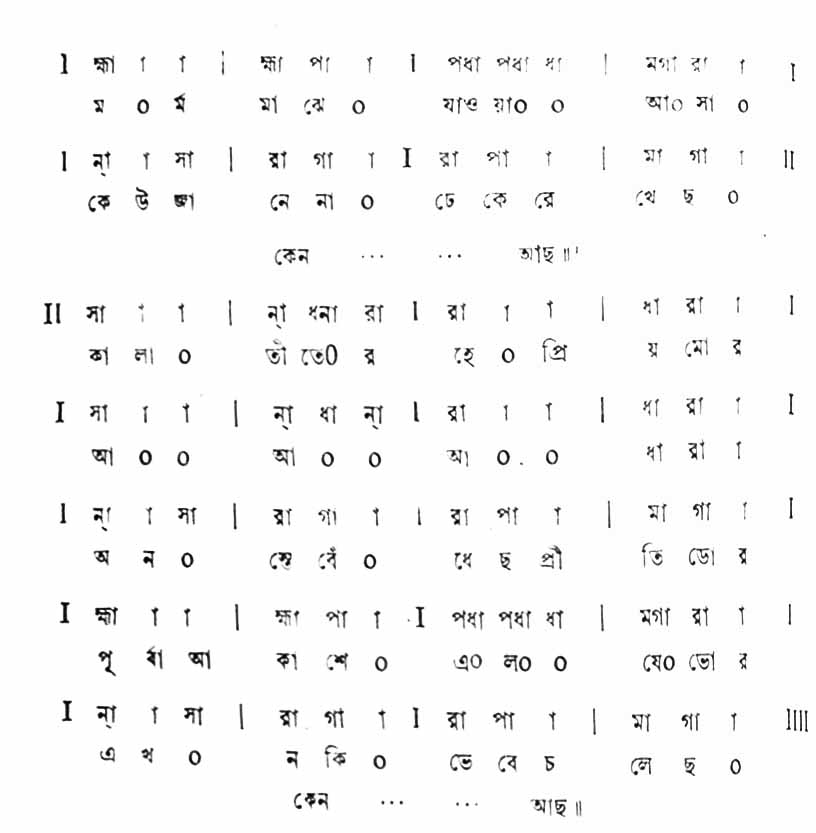 I হ্মা া া | হ্মা পা া I পধা পধা ধা | মগা রা া I
ম ০ র্ম মা ঝে ০ যাও য়া০ ০ আ০ সা ০
I ন্‌া া সা | রা গা া I রা পা া | মা গা া II
কে উ জা নে না ০ ঢে কে রে খে ছ ০
কেন ... ... আছ॥'
II সা া া | ন্‌া ধনা রা I রা া া | ধা রা া I
কা লা ০ তী তে০ র হে ০ প্রি য় মো র
I সা া া | ন্‌া ধা ন্‌া I রা া া | ধা রা া I
আ ০ ০ আ ০ ০ আ ০ . ০ ধা রা া
I ন্‌া া সা | রা গা া I রা পা া | মা গা া I
অ ন ০ ন্তে বেঁ ০ ধে ছ প্রী তি ডো র
I হ্মা া া | হ্মা পা া I পধা পধা ধা | মগা রা া |
পূ র্বা আ কা শে ০ এ০ ল০ ০ যে০ ভো র
I ন্‌া া সা | রা গা া I রা পা া | মা গা া IIII
এ খ ০ ন কি ০ ভে বে চ লে ছ ০
কেন ... ... আছ॥